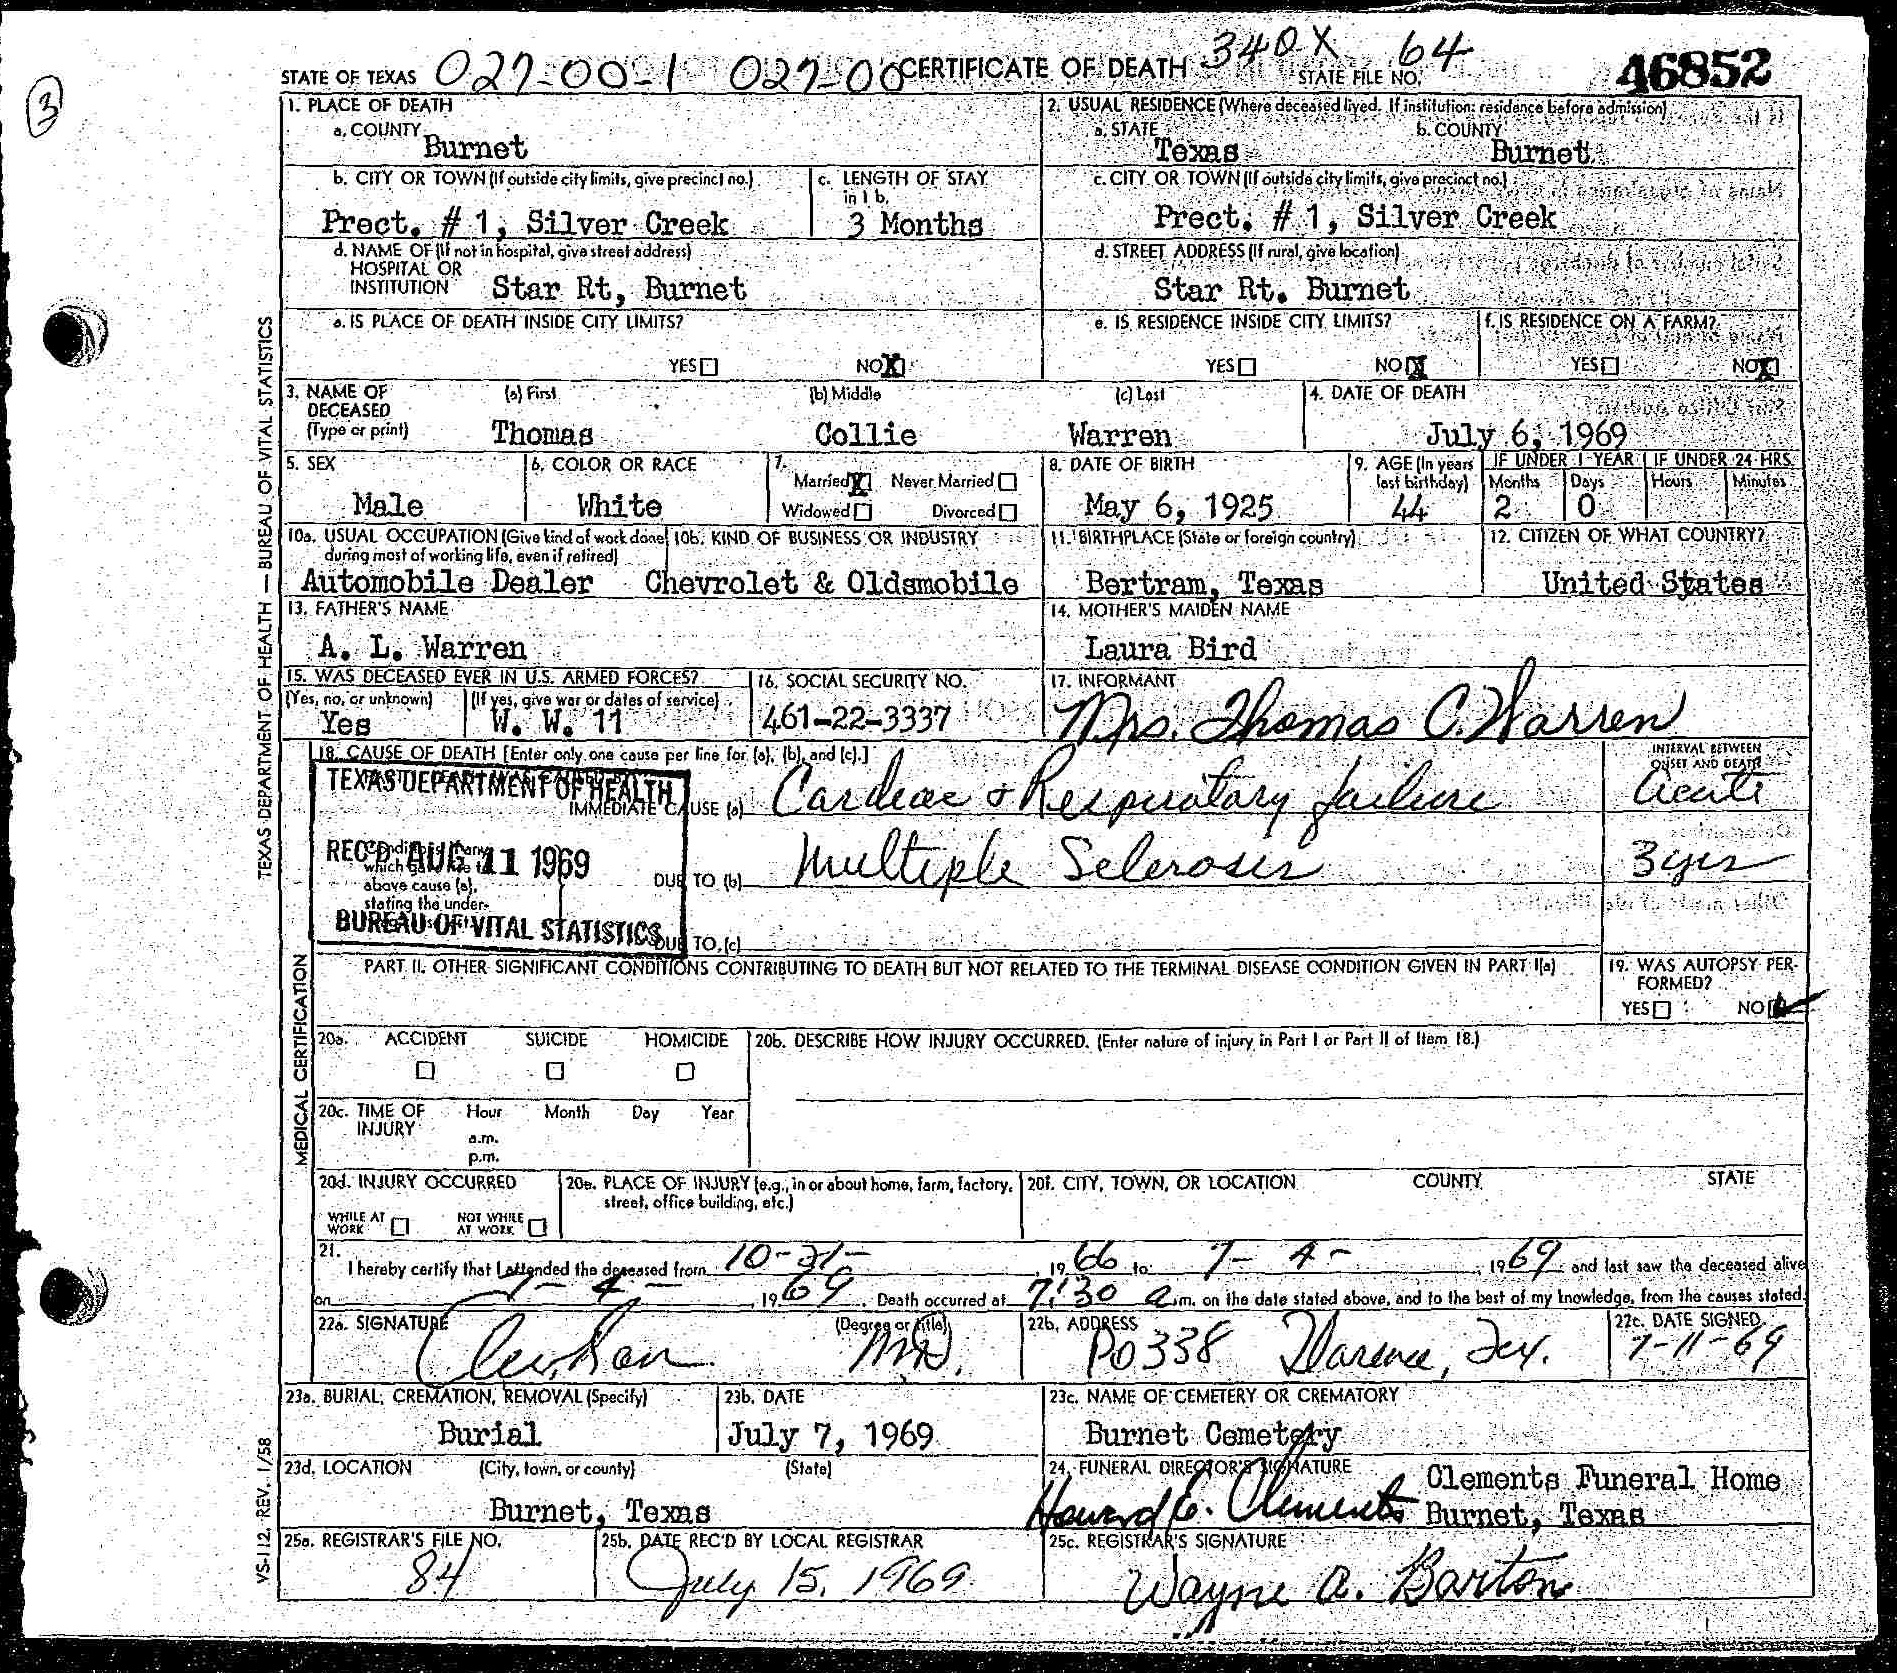 STATE OF TEXAS 027-00-1 027-00 CERTIFICATE OF DEATH 340X 64 STATE FILE NO. 46852
3
1. PLACE OF DEATH
a. COUNTY Burnet
2. USUAL RESIDENCE (Where deceased lived. If institution: residence before admission)
a. STATE Texas b. COUNTY Burnet
b. CITY OR TOWN (If outside city limits, give precinct no.) Prect. # 1, Silver Creek
c. LENGTH OF STAY in 1 b. 3 Months
c. CITY OR TOWN (If outside city limits, give precinct no.) Prect. # 1, Silver Creek
d. NAME OF (If not in hospital, give street address) HOSPITAL OR INSTITUTION Star Rt, Burnet
d. STREET ADDRESS (If rural, give location) Star Rt. Burnet
e. IS PLACE OF DEATH INSIDE CITY LIMITS?
YES NO X
e. IS RESIDENCE INSIDE CITY LIMITS?
YES NO X
f. IS RESIDENCE ON A FARM?
YES NO X
3. NAME OF DECEASED (Type or print)
(a) First Thomas (b) Middle Collie (c) Last Warren
4. DATE OF DEATH July 6, 1969
5. SEX Male
6. COLOR OR RACE White
7. Married X Never Married
Widowed Divorced
8. DATE OF BIRTH May 6, 1925
9. AGE (In years last birthday) 44
IF UNDER 1 YEAR Months 2 Days 0
IF UNDER 24 HRS. Hours Minutes
10a. USUAL OCCUPATION (Give kind of work done during most of working life, even if retired) Automobile Dealer
10b. KIND OF BUSINESS OR INDUSTRY Chevrolet & Oldsmobile
11. BIRTHPLACE (State or foreign country) Bertram, Texas
12. CITIZEN OF WHAT COUNTRY? United States
13. FATHER'S NAME A. L. Warren
14. MOTHER'S MAIDEN NAME Laura Bird
15. WAS DECEASED EVER IN U.S. ARMED FORCES?
(Yes, no, or unknown) Yes (If yes, give war or dates of service) W. W. 11
16. SOCIAL SECURITY NO. 461-22-3337
17. INFORMANT Mrs. Thomas C. Warren
18. CAUSE OF DEATH [Enter only one cause per line for (a), (b), and (c).]
INTERVAL BETWEEN ONSET AND DEATH
IMMEDIATE CAUSE (a) Cardiac & Respiratory failure acute
DUE TO (b) Multiple Sclerosis 3 yrs
DUE TO (c)
TEXAS DEPARTMENT OF HEALTH
REC'D AUG 11 1969
BUREAU OF VITAL STATISTICS
above cause (a), stating the under-
PART II. OTHER SIGNIFICANT CONDITIONS CONTRIBUTING TO DEATH BUT NOT RELATED TO THE TERMINAL DISEASE CONDITION GIVEN IN PART I(a)
19. WAS AUTOPSY PERFORMED?
YES NO
20a. ACCIDENT SUICIDE HOMICIDE
20b. DESCRIBE HOW INJURY OCCURRED. (Enter nature of injury in Part I or Part II of Item 18.)
20c. TIME OF INJURY Hour Month Day Year
a.m.
p.m.
20d. INJURY OCCURRED
WHILE AT WORK NOT WHILE AT WORK
20e. PLACE OF INJURY (e.g., in or about home, farm, factory, street, office building, etc.)
20f. CITY, TOWN, OR LOCATION COUNTY STATE
21. I hereby certify that I attended the deceased from 10-21- , 19 66 to 7-4- , 19 69 and last saw the deceased alive
on 7-4- , 19 69. Death occurred at 7:30 a.m. on the date stated above, and to the best of my knowledge, from the causes stated.
22a. SIGNATURE (Degree or title) M.D.
22b. ADDRESS PO 338 Florence, Tex.
22c. DATE SIGNED 7-11-69
23a. BURIAL, CREMATION, REMOVAL (Specify) Burial
23b. DATE July 7, 1969
23c. NAME OF CEMETERY OR CREMATORY Burnet Cemetery
23d. LOCATION (City, town, or county) (State) Burnet, Texas
24. FUNERAL DIRECTOR'S SIGNATURE Howard E. Clements Clements Funeral Home Burnet, Texas
25a. REGISTRAR'S FILE NO. 84
25b. DATE REC'D BY LOCAL REGISTRAR July 15, 1969
25c. REGISTRAR'S SIGNATURE Wayne A. Barton
TEXAS DEPARTMENT OF HEALTH — BUREAU OF VITAL STATISTICS
MEDICAL CERTIFICATION
VS-112, REV. 1/58